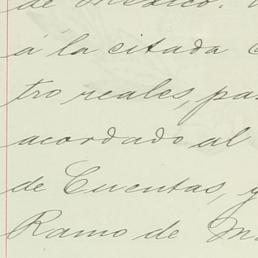 de México.
á la citada
tro reales, pa
acordado al
de Cuentas, y
Ramo de M